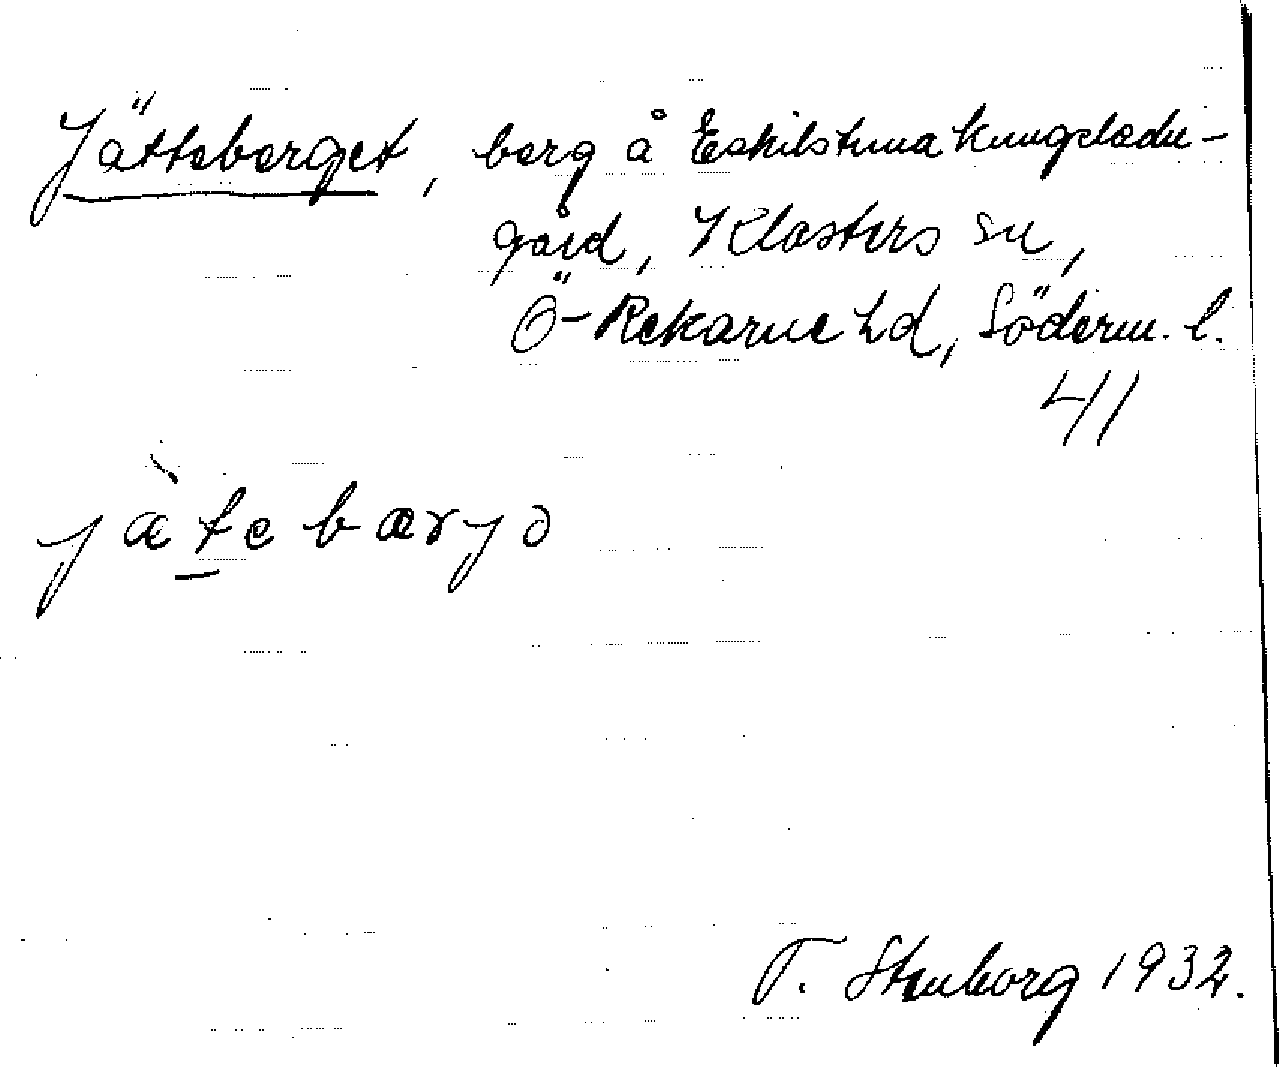 Jätteberget, berg å Eskilstuna kungsladu-
gård, Klosters sn,
Ö-Rekarne hd, Söderm. l.
41
jæ̀te bærjə
T. Stenborg 1932.